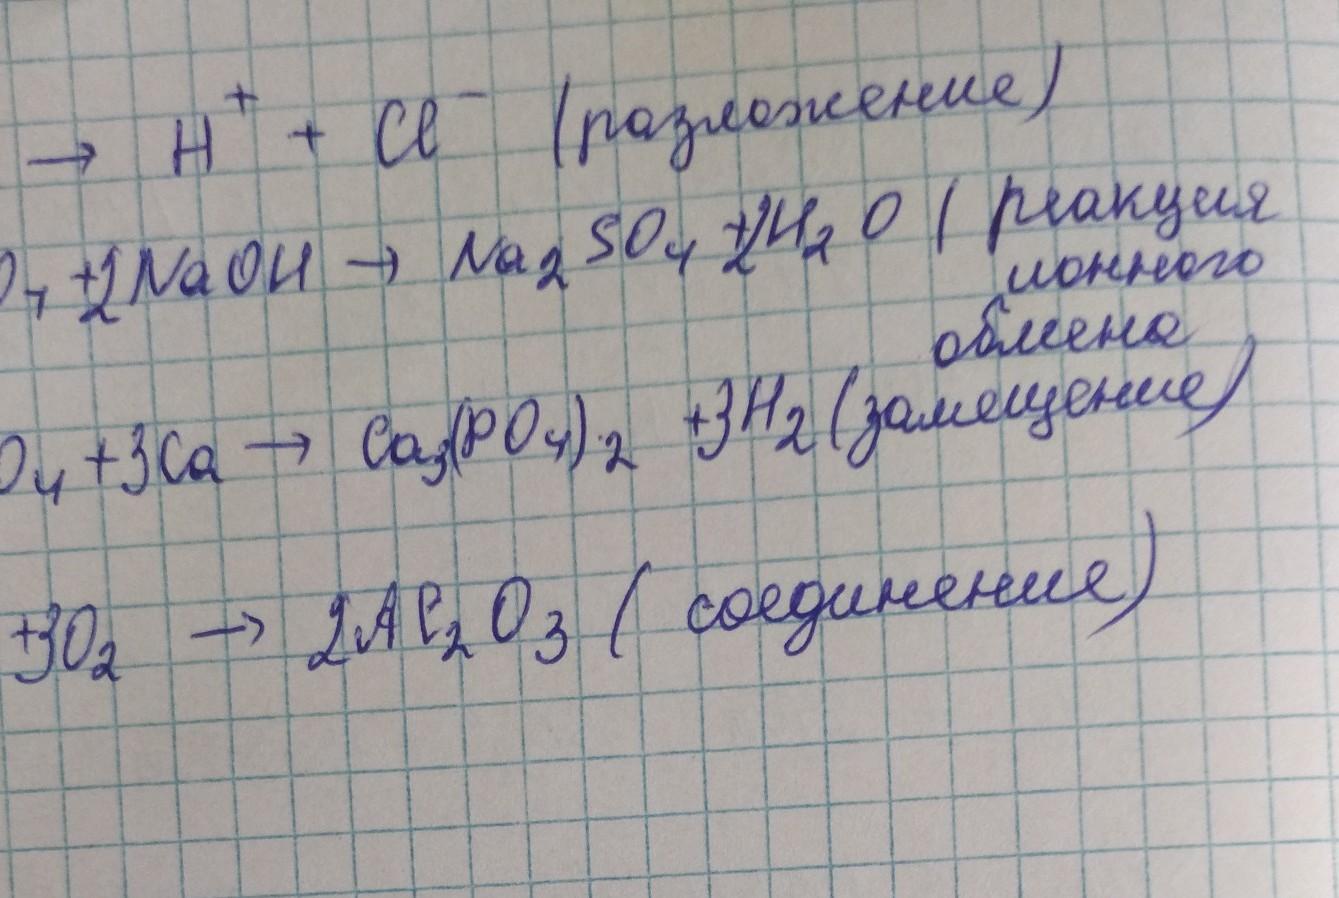 → H⁺ + Cl⁻ (разложение)
O₄ +2NaOH → Na₂SO₄ +2H₂O ( реакция
ионного
обмена
O₄ +3Ca → Ca₃(PO₄)₂ +3H₂ (замещение)
+3O₂ → 2Al₂O₃ ( соединение)